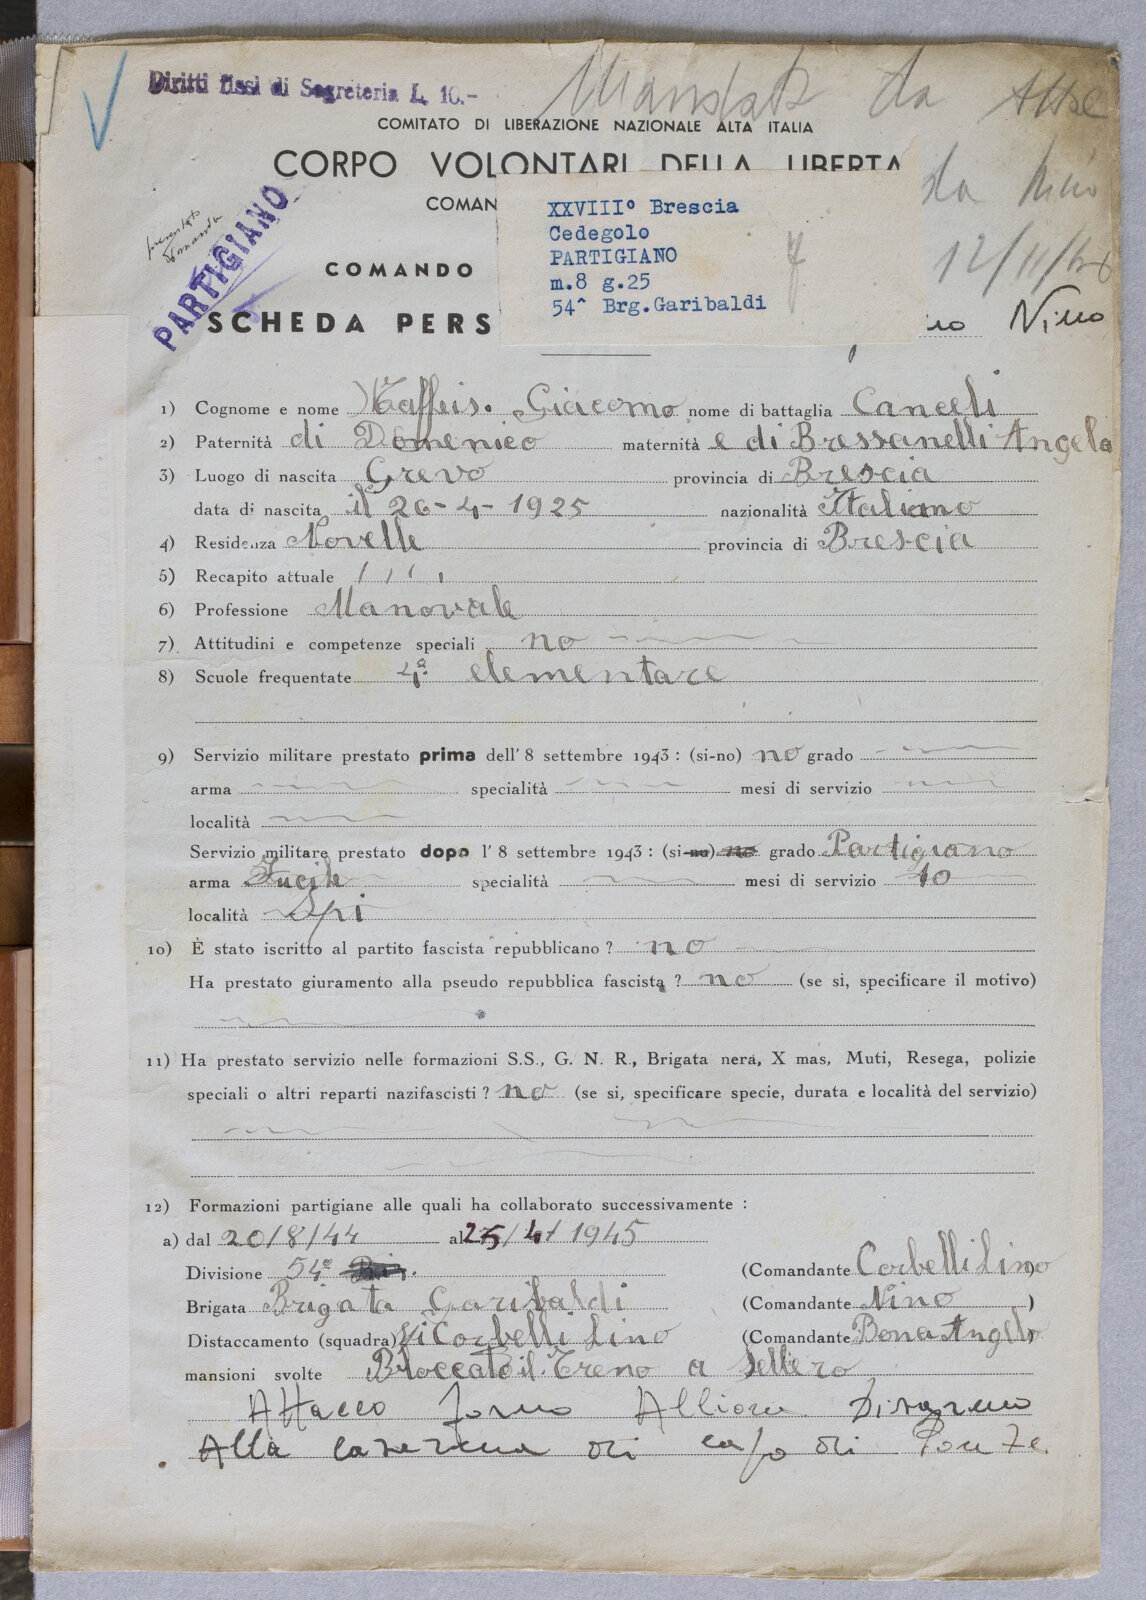 Diritti fissi di Segreteria L. 10.-
Mandato da
COMITATO DI LIBERAZIONE NAZIONALE ALTA ITALIA
CORPO VOLONTARI DELLA LIBERTA
da Nino
COMAN
12/11/46
presentato
domanda
PARTIGIANO
XXVIII° Brescia
Cedegolo
PARTIGIANO
m.8 g.25
54^ Brg.Garibaldi
COMANDO
SCHEDA PERS
Nino
1) Cognome e nome Maffeis. Giacomo nome di battaglia Canceli
2) Paternità di Domenico maternità e di Bressanelli Angela
3) Luogo di nascita Grevo provincia di Brescia
data di nascita il 26-4-1925 nazionalità Italiano
4) Residenza Novelle provincia di Brescia
5) Recapito attuale , , , ,
6) Professione Manovale
7) Attitudini e competenze speciali no
8) Scuole frequentate 4ª elementare
9) Servizio militare prestato prima dell'8 settembre 1943: (si-no) no grado
arma specialità mesi di servizio
località
Servizio militare prestato dopo l'8 settembre 1943: (si-no) no grado Partigiano
arma Fucile specialità mesi di servizio 10
località Spi
10) È stato iscritto al partito fascista repubblicano? no
Ha prestato giuramento alla pseudo repubblica fascista? no (se si, specificare il motivo)
11) Ha prestato servizio nelle formazioni S.S., G. N. R., Brigata nera, X mas, Muti, Resega, polizie
speciali o altri reparti nazifascisti? no (se si, specificare specie, durata e località del servizio)
12) Formazioni partigiane alle quali ha collaborato successivamente:
a) dal 20/8/44 al 25/4/1945
Divisione 54ª (Comandante Corbelli Lino)
Brigata Brigata Garibaldi (Comandante Nino)
Distaccamento (squadra) Di Corbelli Lino (Comandante Bona Angelo)
mansioni svolte Bloccato il Treno a Sellero
Attacco forno Allione Disarmo
Alla caserma di capo di Ponte